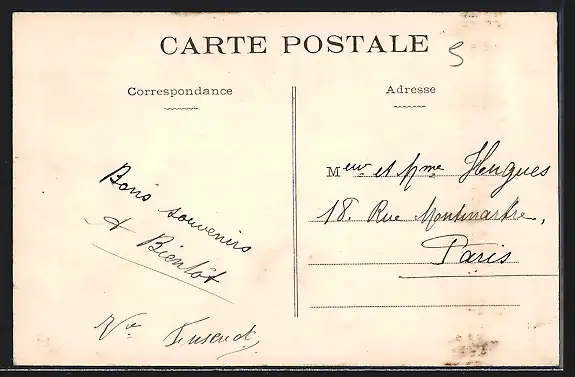 CARTE POSTALE
5
Correspondance
Adresse
Meur et Mme Hugues
18. Rue Montmartre,
Paris
Bons souvenirs
& Bientôt
Vve